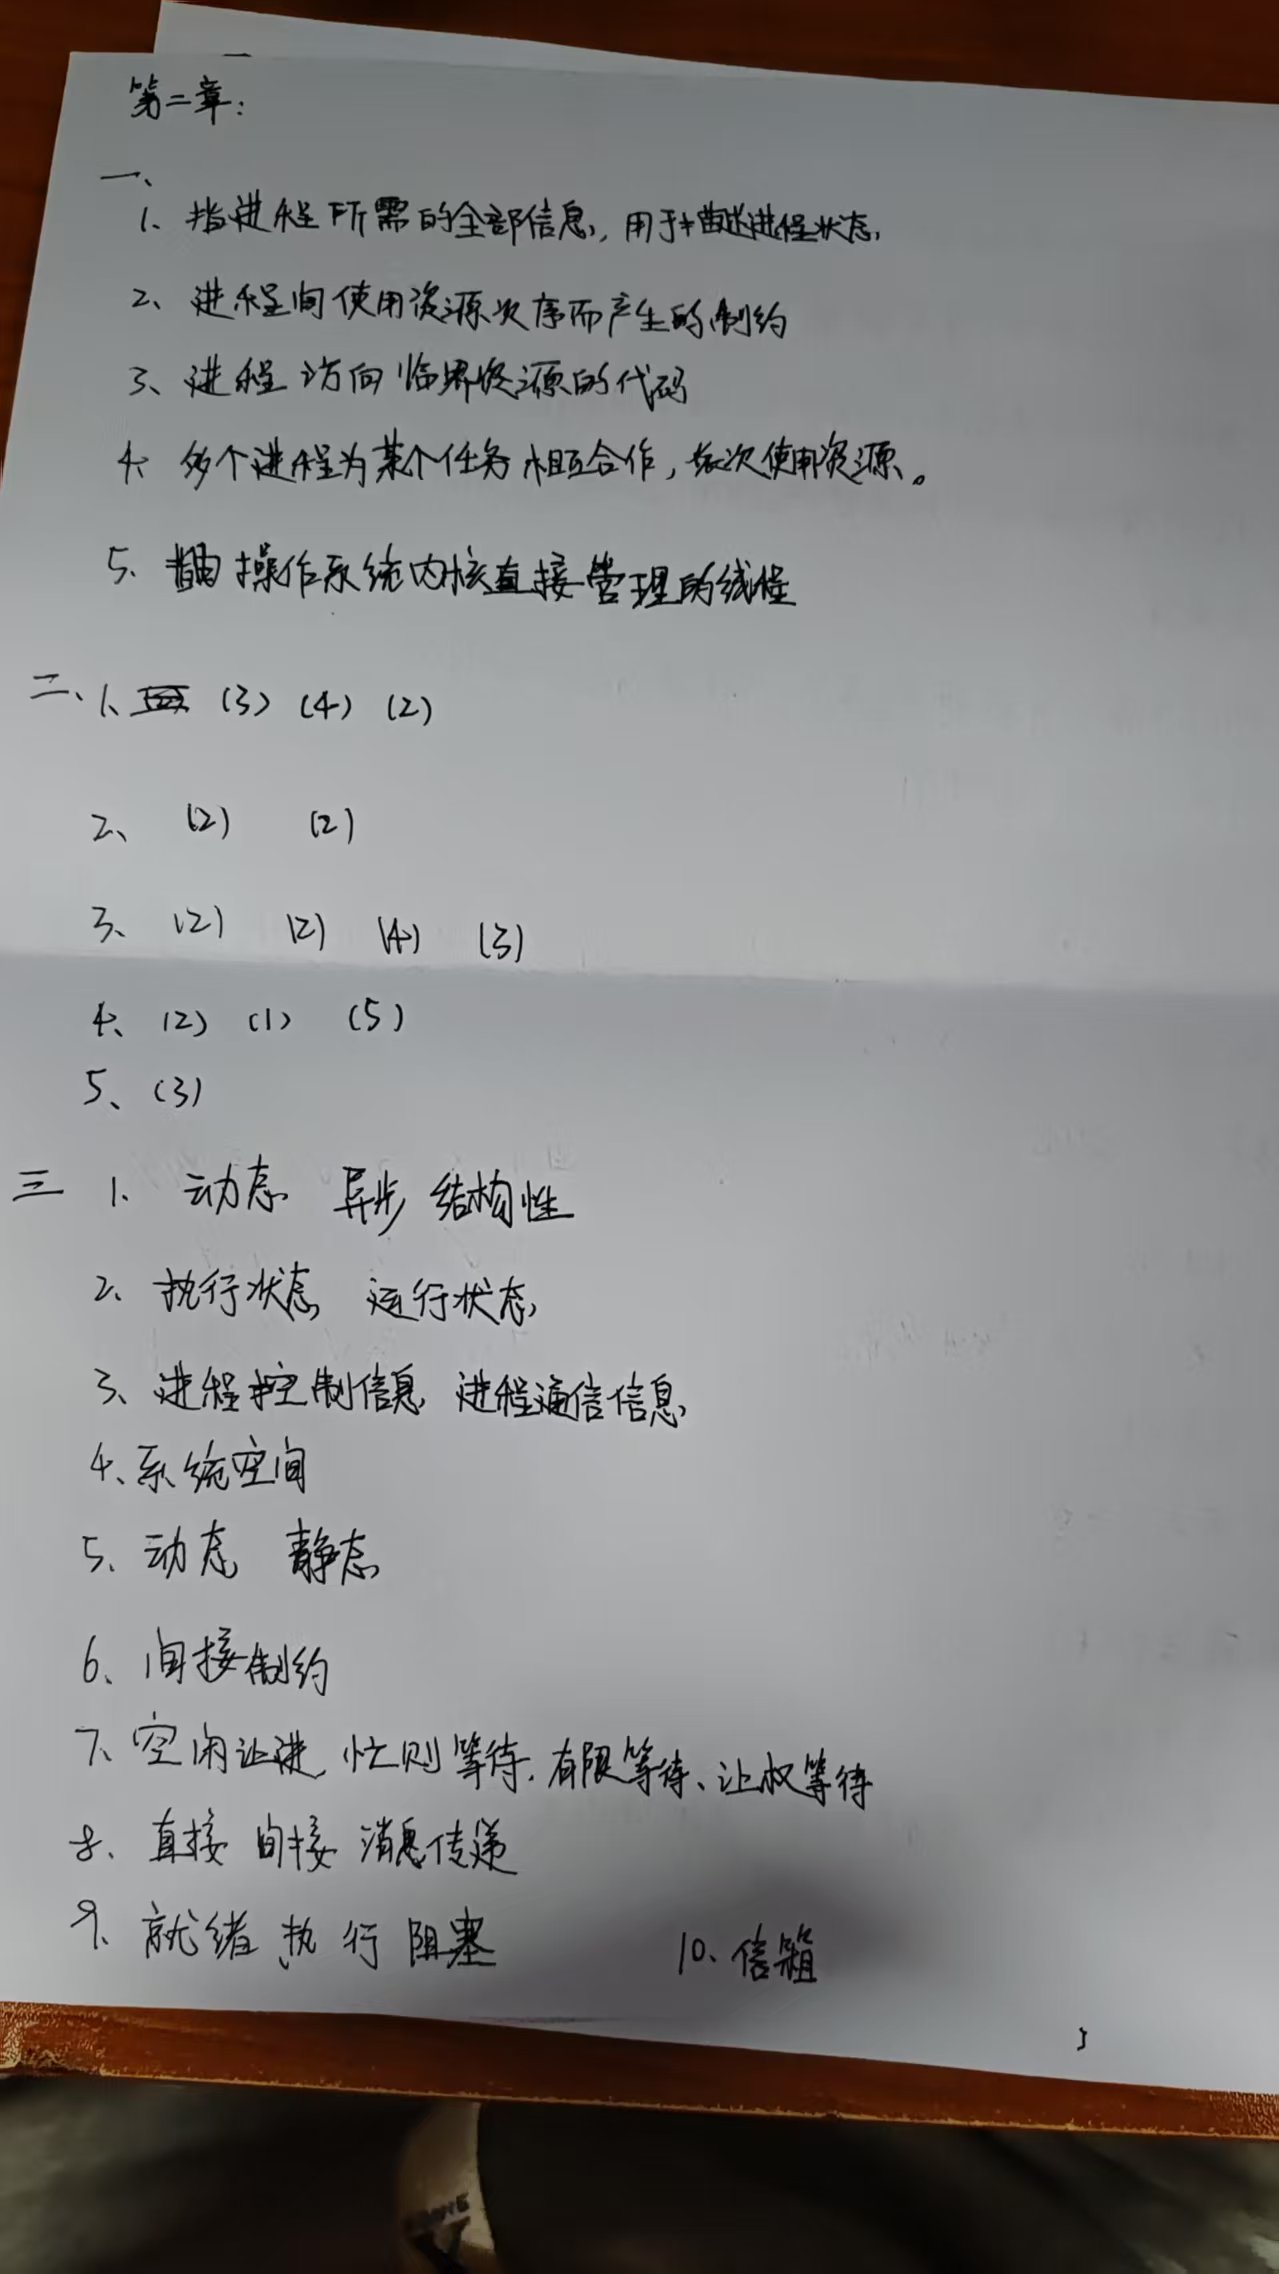 第二章:
一、
1、指进程所需的全部信息,用于描述进程状态,
2、进程间使用资源次序而产生的制约
3、进程访问临界资源的代码
4、多个进程为某个任务相互合作,依次使用资源。
5、指由操作系统内核直接管理的线程
二、1、(3) (4) (2)
2、(2) (2)
3、(2) (2) (4) (3)
4、(2) (1) (5)
5、(3)
三 1、动态 异步 结构性
2、执行状态 运行状态
3、进程控制信息 进程通信信息
4、系统空间
5、动态 静态
6、间接制约
7、空闲让进、忙则等待、有限等待、让权等待
8、直接 间接 消息传递
9、就绪 执行 阻塞 10、信箱